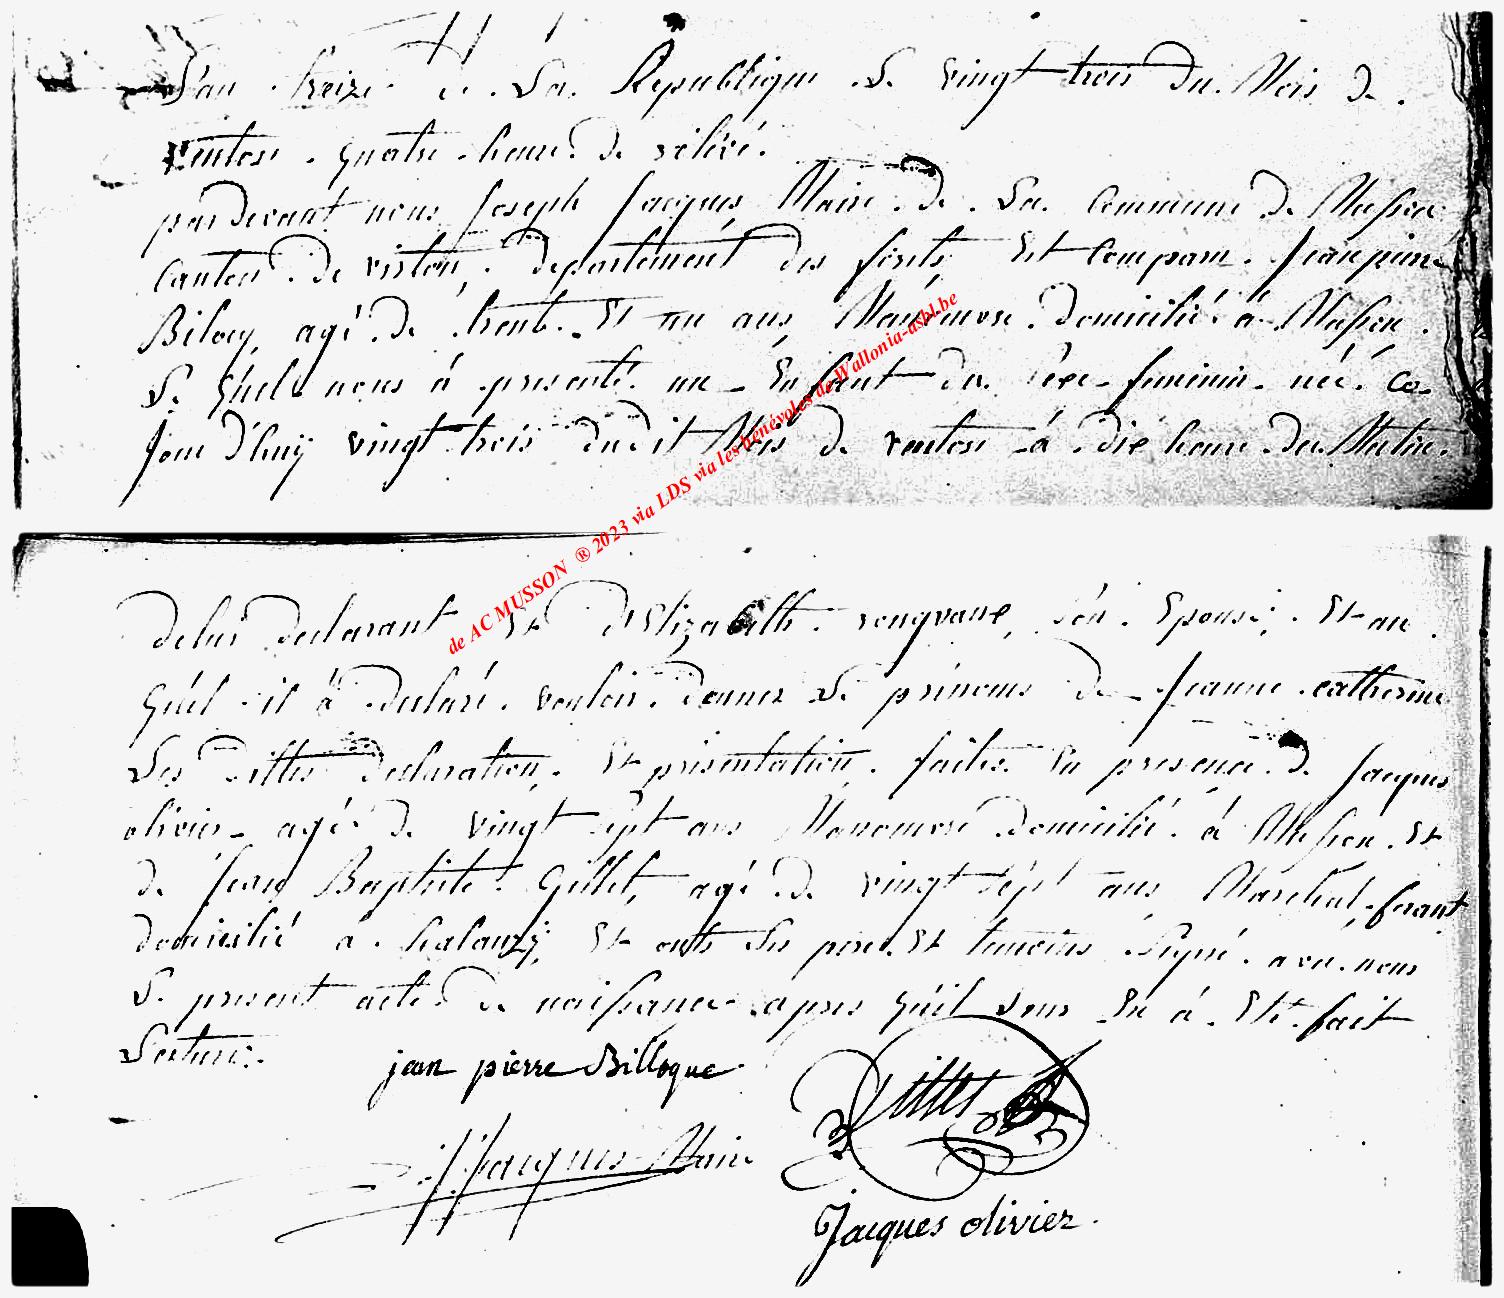 L'an treize de La Republique Le vingt trois du Mois de
ventose quatre heure de relévé.
pardevant nous joseph jacques Maire de La Commune de Musson
Canton de virton, departément des forêts, Est Comparu jean pierre
Bilocq, agé de trente Et un ans, Manœuvre domicilié à Musson,
Le quel nous à presenté un Enfant du sexe feminin néé ce
jour d'huÿ vingt trois dudit Mois de ventose à dix heure du Matin
delui declarant Et d'Elizabeth son Epouse, Et au
quel il à declaré vouloir donner Le prénoms de jeanne catherine
Les dittes declaration, Et présentation, faites En presence de jacques
olivier agé de vingt sept ans Manœuvre domicilié à Musson Et
de jean Baptiste Gillet, agé de vingt sept ans Marchal ferant
domicilié à halanzÿ, Et onts Les pere Et temoins signé avec nous
Le present acte de naissance apres quil Leur En à Eté fait
Lecture.
jean pierre Billoque
Gillet
JJacques Maire
Jacques olivier
de AC MUSSON ® 2023 via LDS via les bénévoles de Wallonia-asbl.be